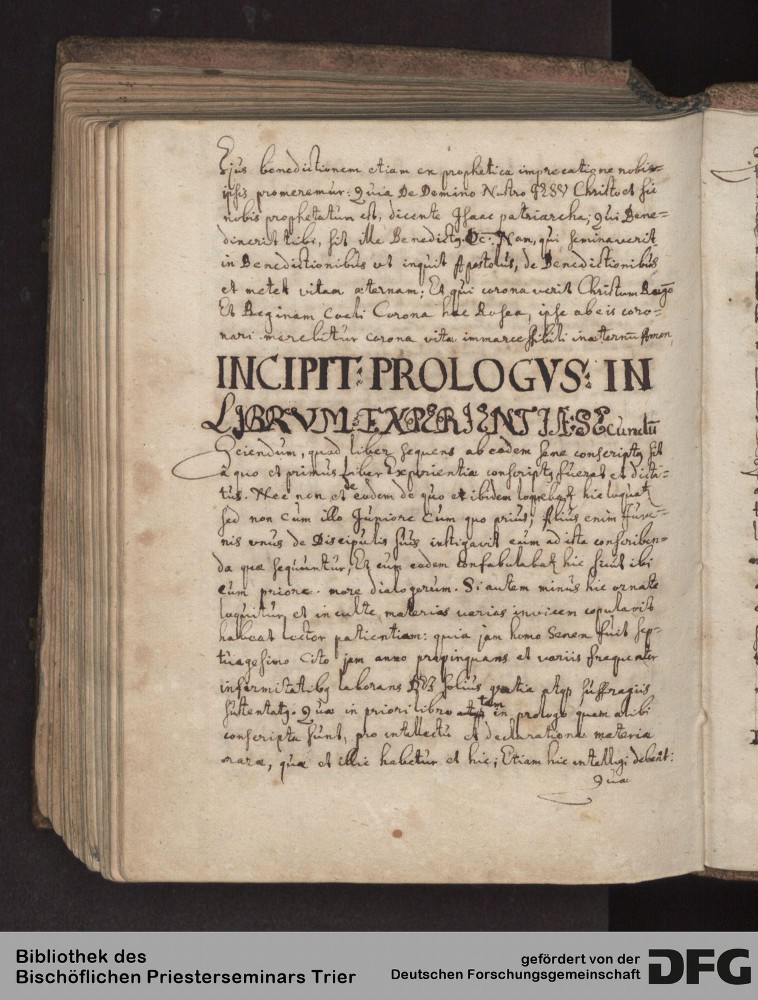 Ejus benedictionem etiam ex prophetica imprecatione nobis-
ipsis promeremur: Quia De Domino Nostro JESU Christo et sic
nobis prophetatum est, dicente Isaac patriarcha; Qui Bene=
dixerit tibi, sit ille Benedictq. &c. Nam, qui seminaverit
in Benedictionibus ut inquit Apostolus, de Benedictionibus
et metet vitam æternam; Et qui coronaverit Christum Regē
Et Reginam Coeli Corona hac Rosea, ipse ab eis coro=
nari merebitur corona vitæ immarcessibili in æternū Amen,
INCIPIT: PROLOGVS: IN
LIBRVM: EXPERIENTIÆ: SEcundū
Sciendum, quod liber sequens ab eodem sene conscriptq sit
a quo et primus Liber Experientiæ conscriptq fuerat et dicta=
tus. Nec non et de eodem de quo et ibidem loquebat hic loquat
sed non cum illo Juniore cum quo prius; Alius enim Juve=
nis unus de Discipulis suis instigavit eum ad ista conscriben=
da quæ sequuntur, Et cum eodem confabulabat hic sicut ibi
cum priore. more dialogorum. Si autem minus hic ornate
loquitur, et inculte, materias varias invicem copulavit
habeat lector patientiam: quia jam homo Senex fuit sep=
tuagesimo Cito jam anno propinquans et variis frequenter
infirmitatibq laborans DEI solius gratia atqȝ suffragiis
sustentatq. Quæ in priori libro tam in prologo quam alibi
conscripta sunt, pro intellectu et declaratione materia
raræ, quæ et illic habetur et hic; Etiam hic intelligi debent:
Quæ
Bibliothek des
Bischöflichen Priesterseminars Trier
gefördert von der
Deutschen Forschungsgemeinschaft
DFG